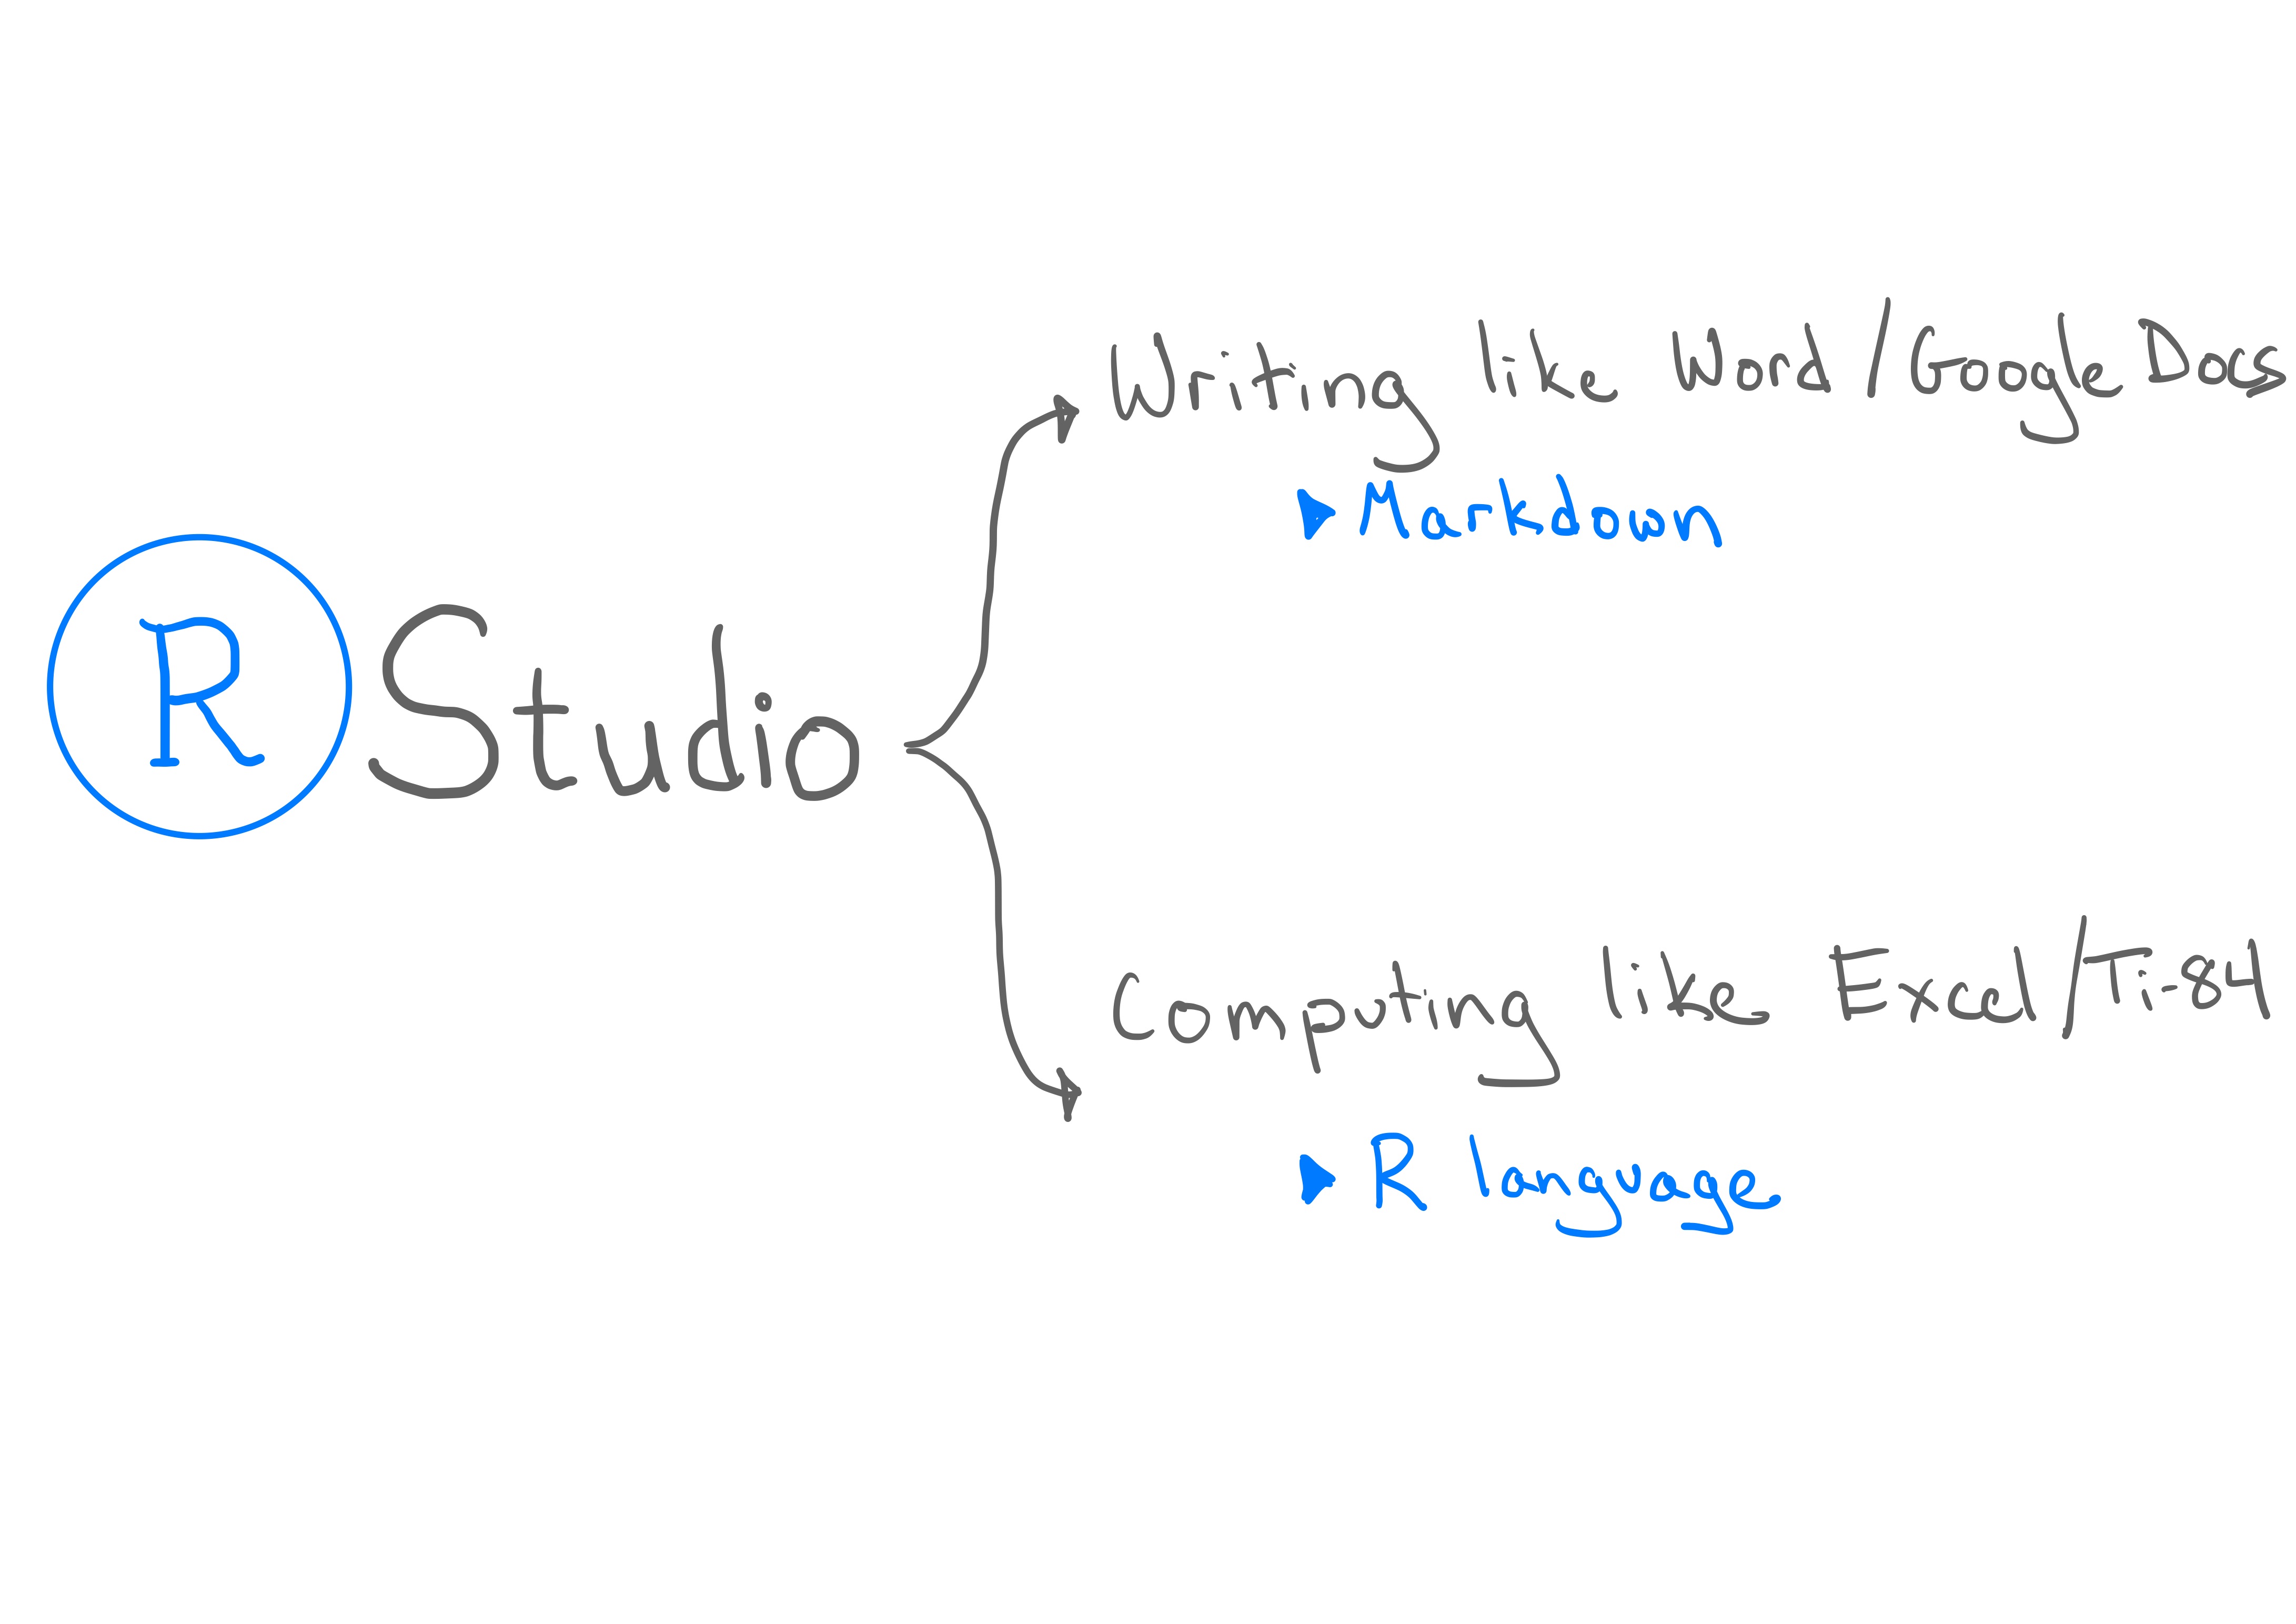 R Studio
Writing like Word / Google Docs
Markdown
Computing like Excel / Ti-84
R language